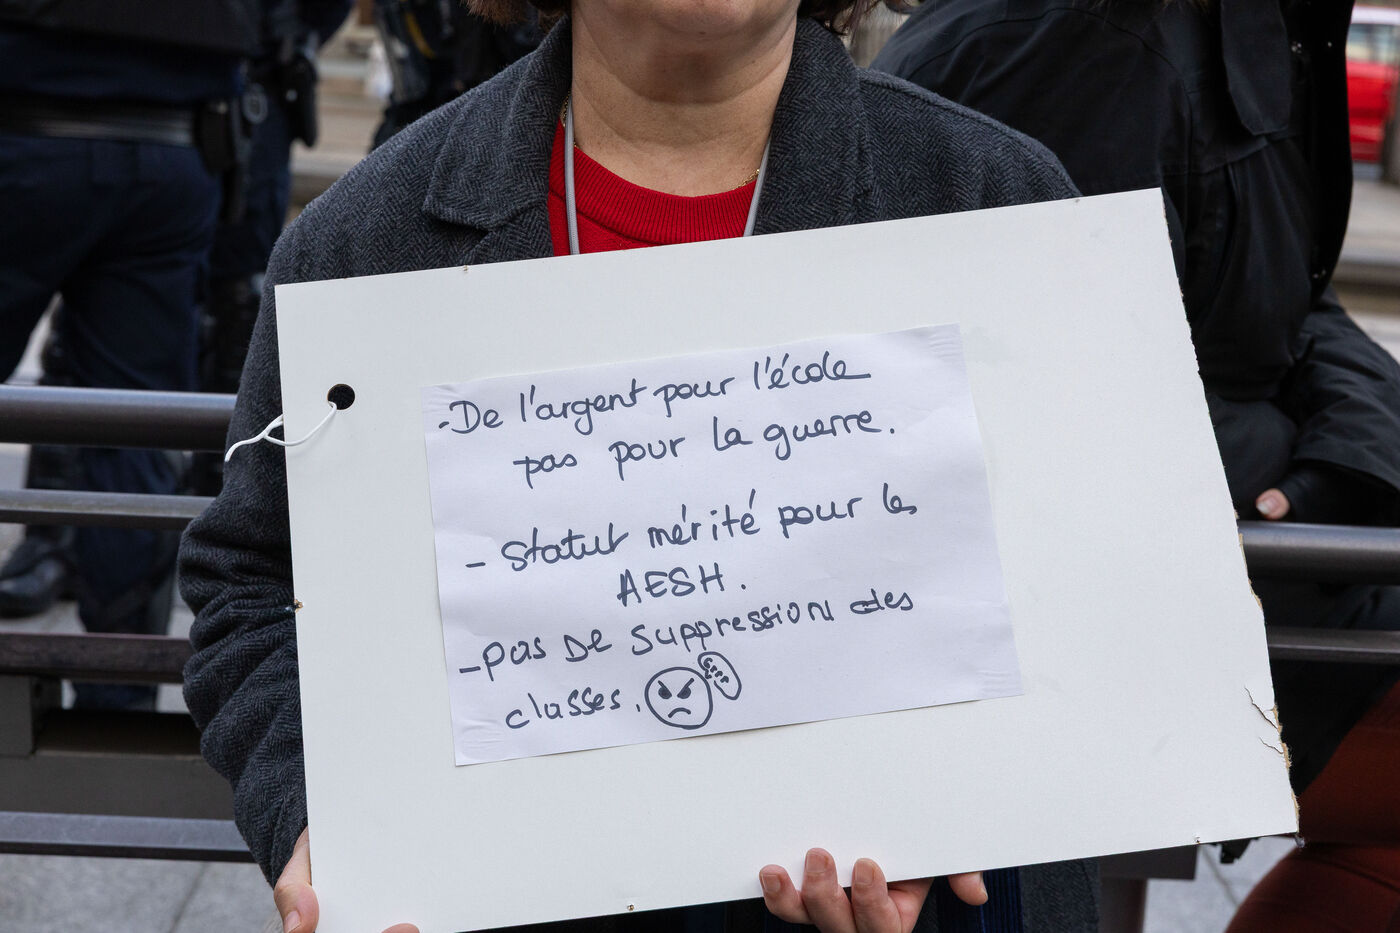 - De l'argent pour l'école
pas pour la guerre.
- Statut mérité pour les
AESH.
- pas de suppression des
classes.